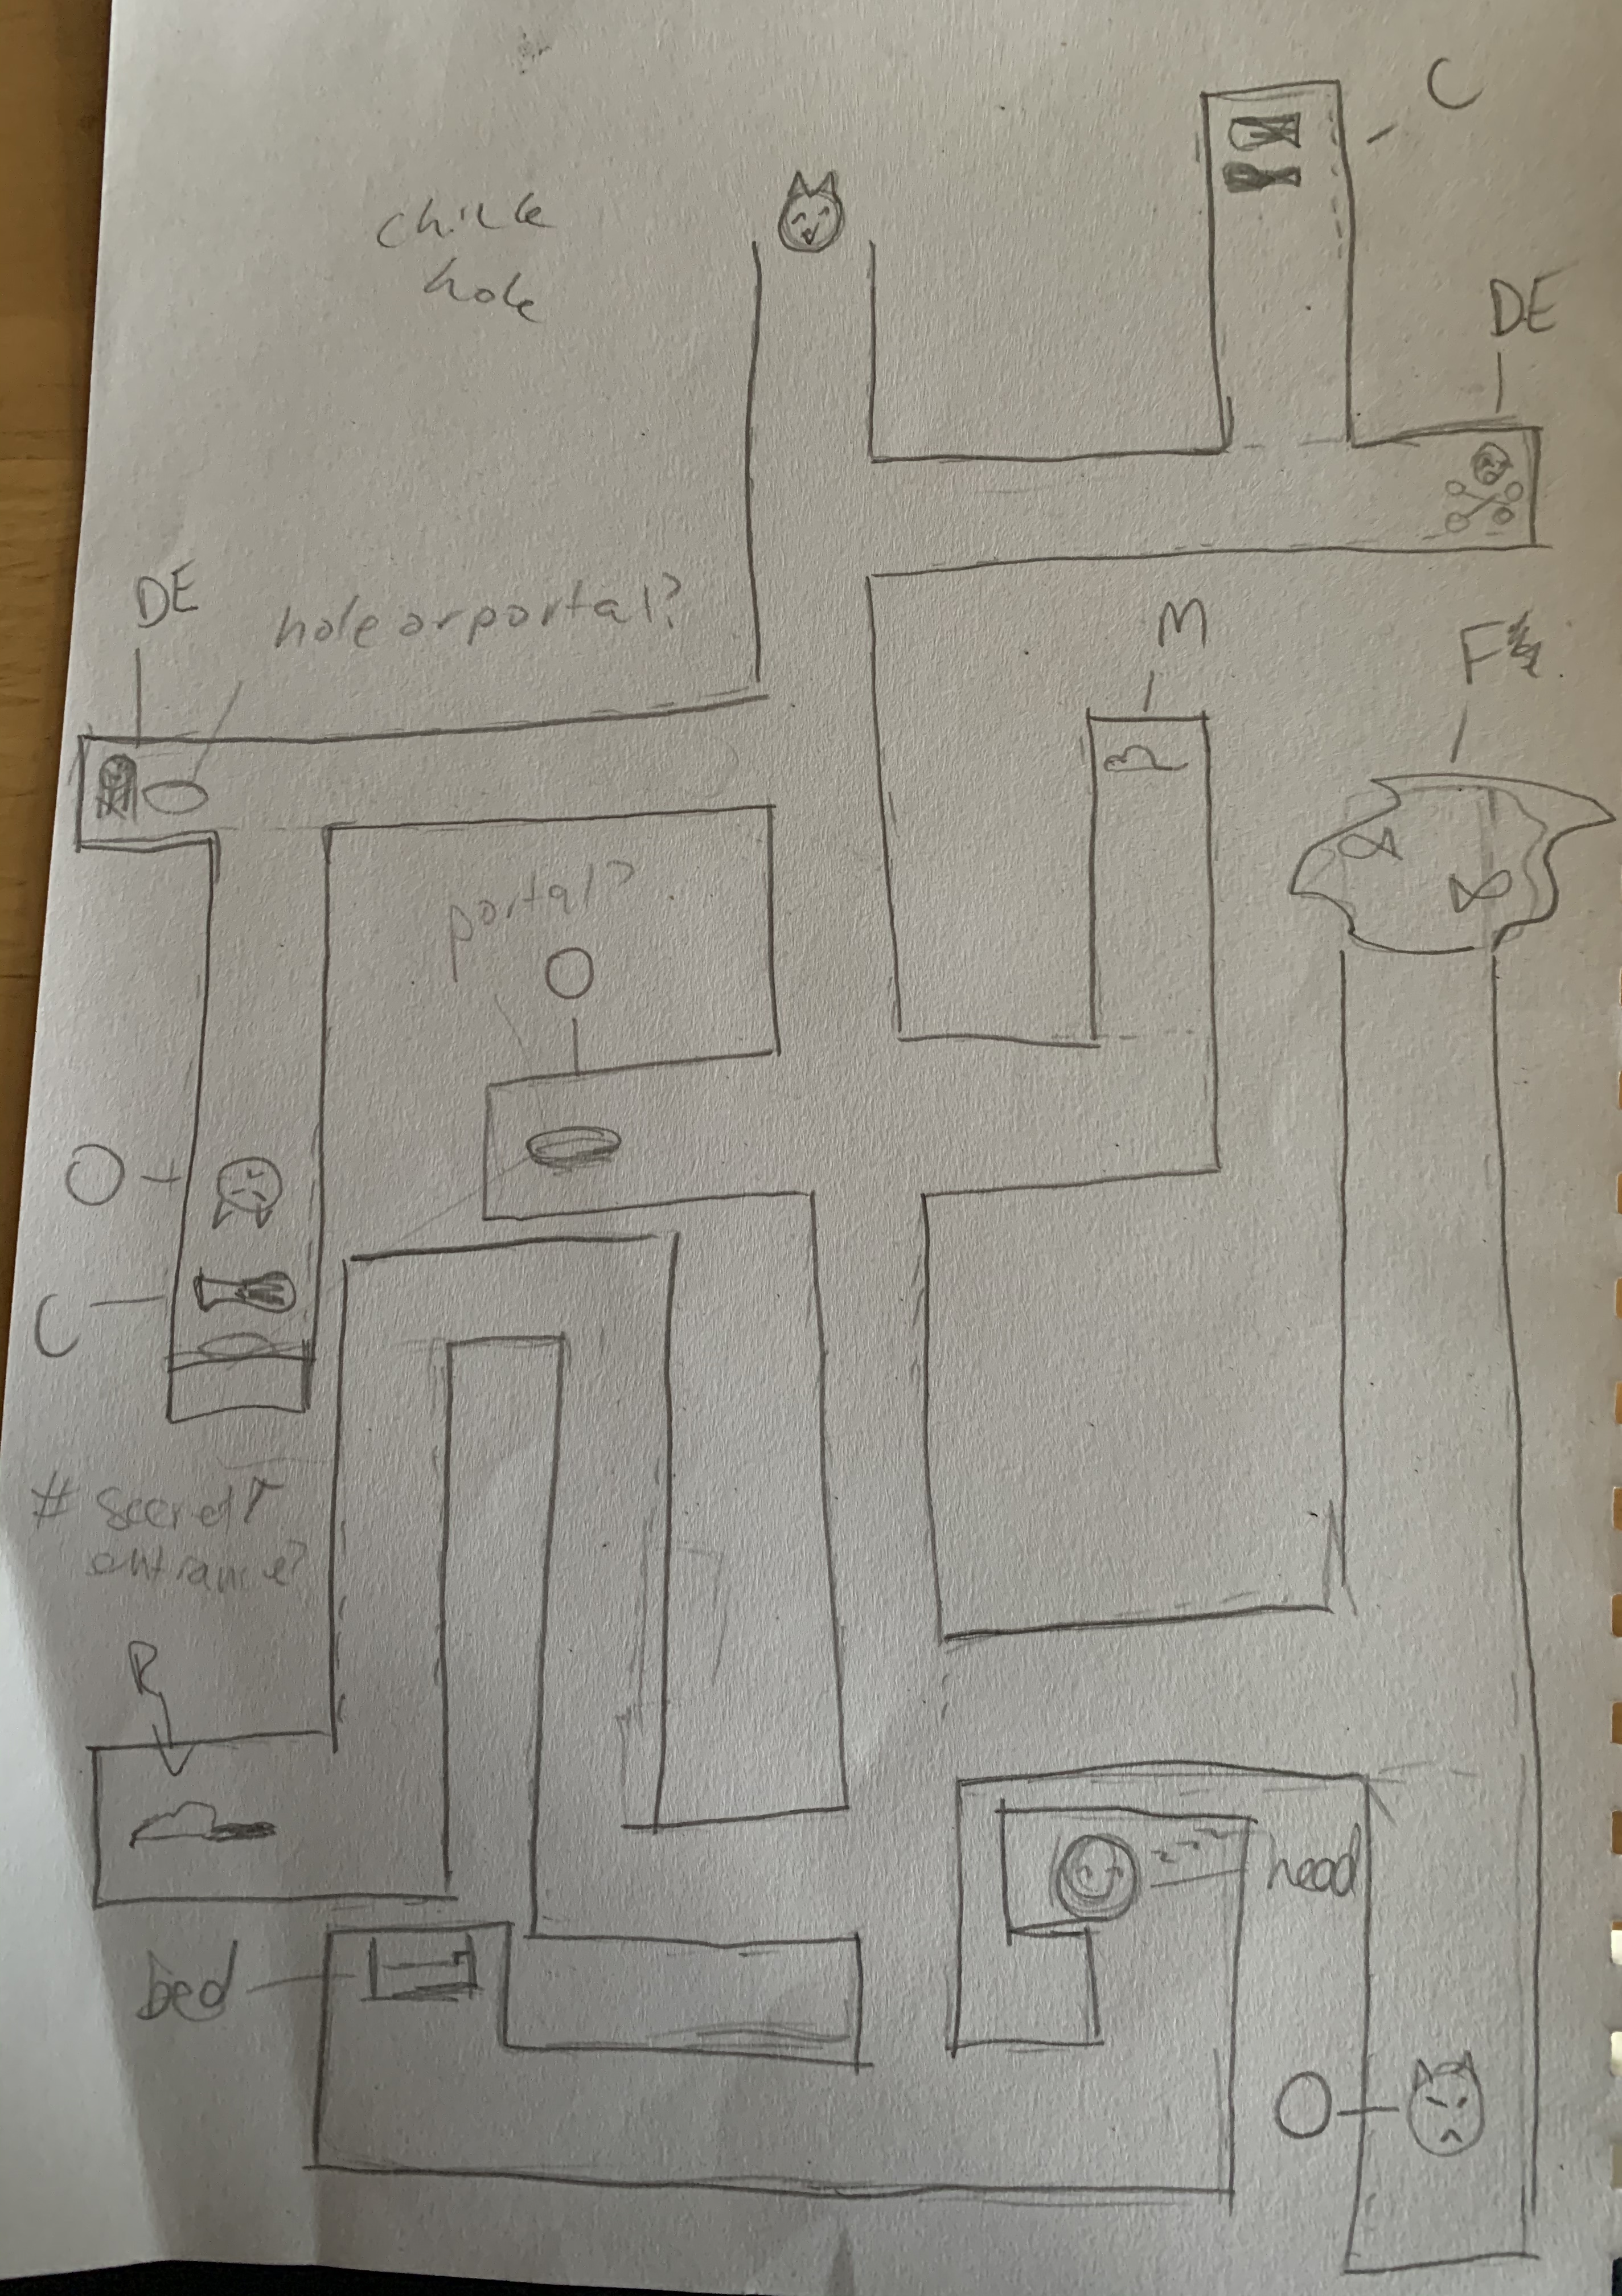 C
hole
DE
DE
hole or portal?
M
F
portal?
O
O
C
# Secret
entrance?
R
head
bed
O